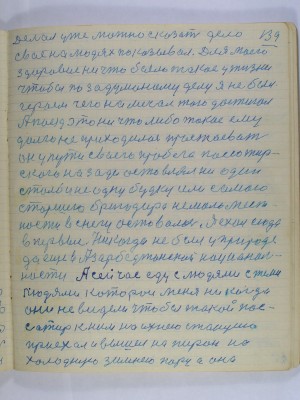 делал уже можно сказать дело 139
своё на людях показывал. Для моего
здоровие ничто было такое у жизни
чтобы по задуманому делу я не был
героям чего написал того достигал
А поезд это ничто либо такое ему
долго не приходилось простоеват
он у пути своего пробега пассажир
ского на зади оставлял ни один
столб и не одну будку или самого
старшего бригадира
ность в снегу оставалос, Я ехал сюда
в первый Никогда не был у природе
да еще в Азарбеджанской национал-
ности. А сейчас еду с людями с теми
людями которои меня никогда
они не видели чтобы такой пас-
сажир к ним на ихнею станцию
приехал и вышел на пирон на
холодную зимнею пору а она